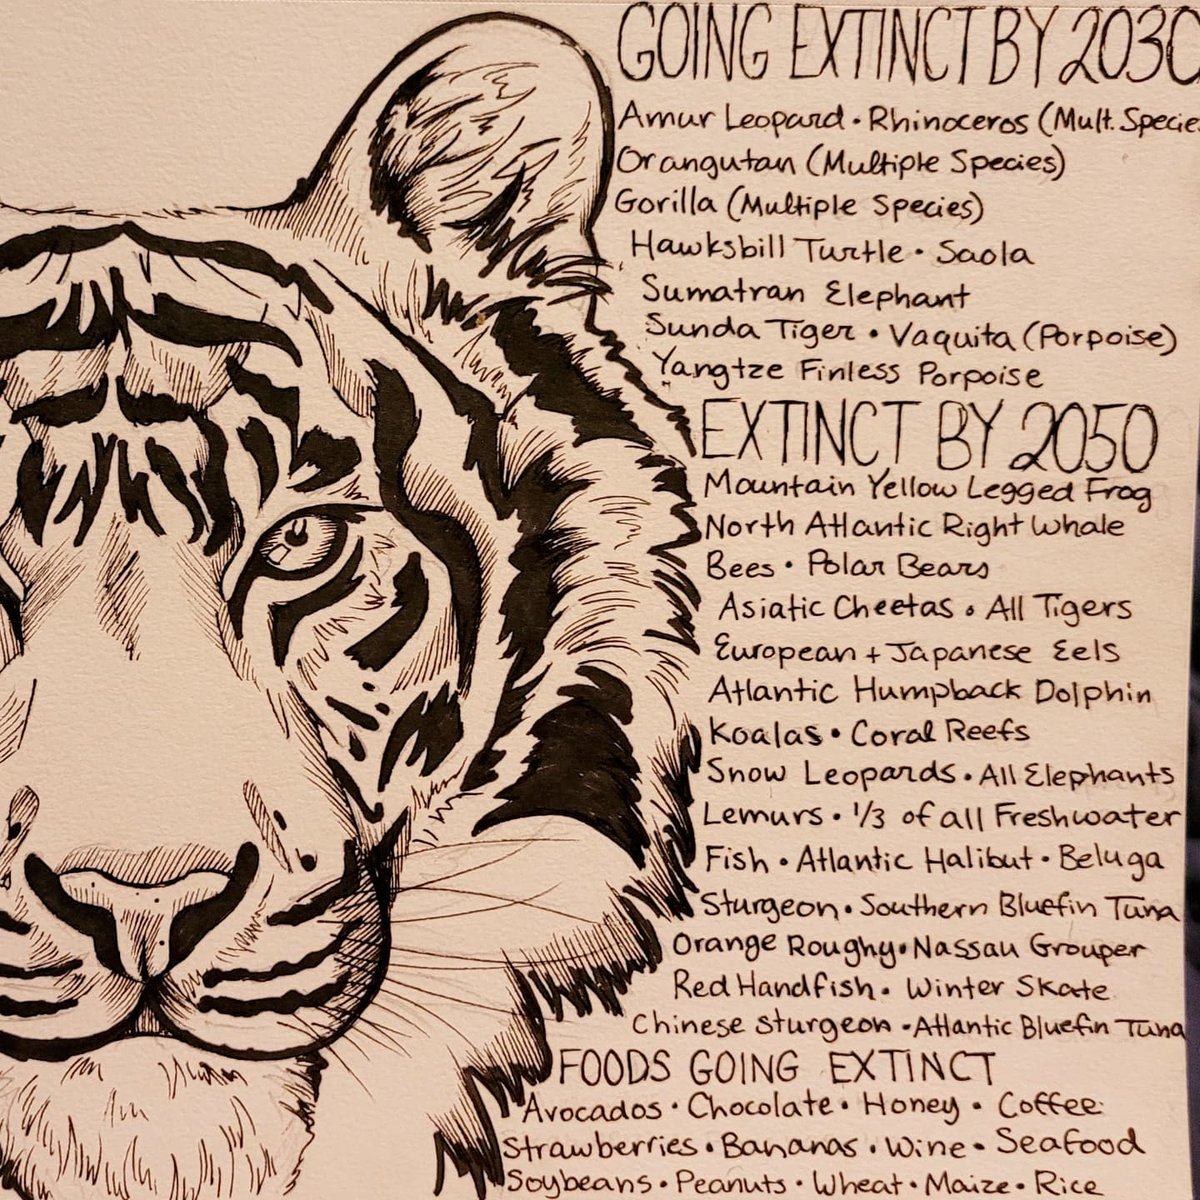 GOING EXTINCT BY 2030
Amur Leopard • Rhinoceros (Mult. Species
Orangutan (Multiple Species)
Gorilla (Multiple Species)
Hawksbill Turtle • Saola
Sumatran Elephant
Sunda Tiger • Vaquita (Porpoise)
Yangtze Finless Porpoise
EXTINCT BY 2050
Mountain Yellow Legged Frog
North Atlantic Right Whale
Bees • Polar Bears
Asiatic Cheetas • All Tigers
European + Japanese Eels
Atlantic Humpback Dolphin
Koalas • Coral Reefs
Snow Leopards • All Elephants
Lemurs • 1/3 of all Freshwater
Fish • Atlantic Halibut • Beluga
Sturgeon • Southern Bluefin Tuna
Orange Roughy • Nassau Grouper
Red Handfish • Winter Skate
Chinese Sturgeon • Atlantic Bluefin Tuna
FOODS GOING EXTINCT
Avocados • Chocolate • Honey • Coffee
Strawberries • Bananas • Wine • Seafood
Soybeans • Peanuts • Wheat • Maize • Rice